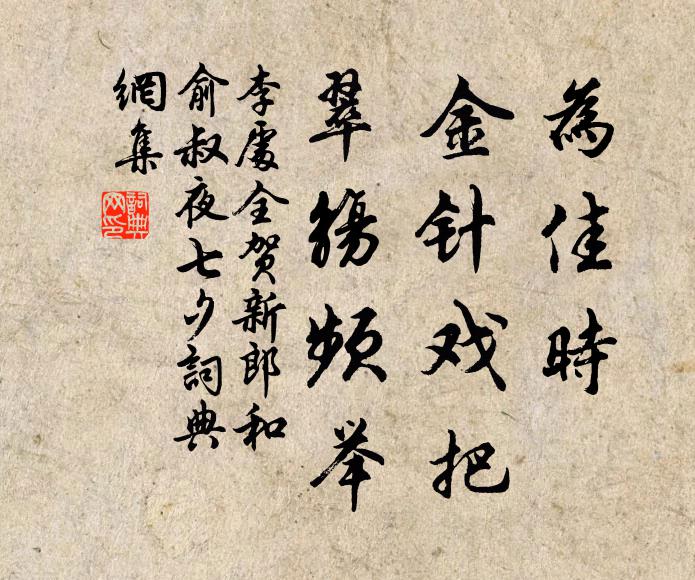 為佳時
金针戏把
翠觴頻举
李處全贺新郎和
俞叔夜七夕詞典
網集
詞典
网印